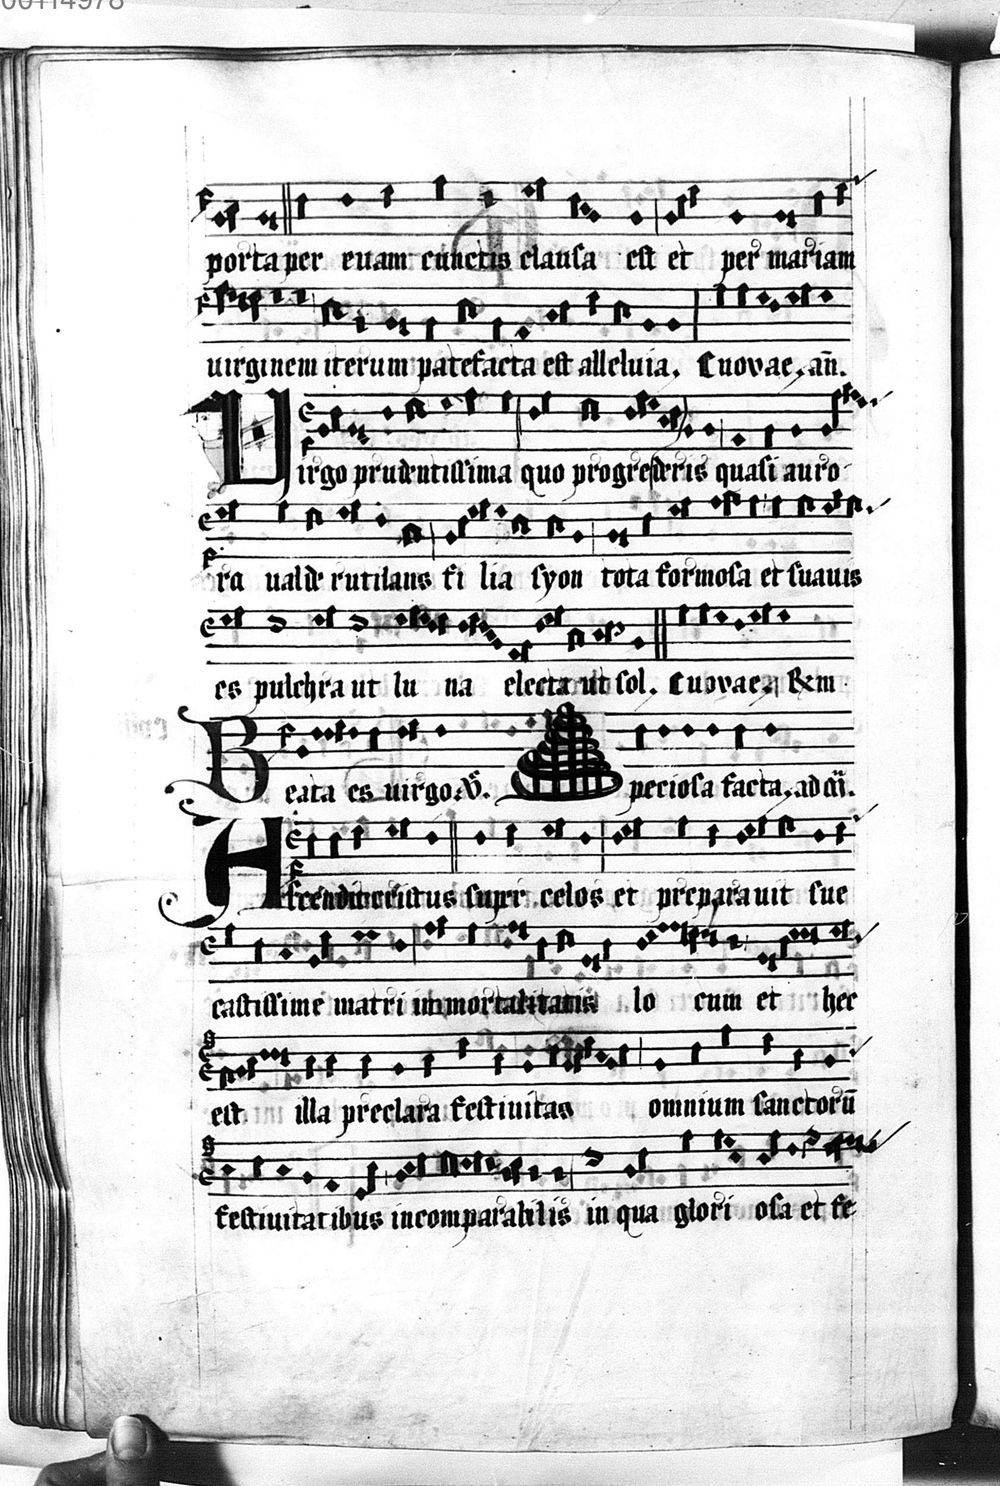 00114978
porta per euam cunctis clausa est et per mariam
uirginem iterum patefacta est alleluia. Euovae. an̄.
Uirgo prudentissima quo progrederis quasi auro
ra ualde rutilans fi lia syon tota formosa et suauis
es pulchra ut lu na electa ut sol. Euovae.
Beata es uirgo. V̄. Speciosa facta. ad
Ascendit cristus super celos et preparauit sue
castissime matri immortalitatis lo cum et hec
est illa preclara festiuitas omnium sanctorū
festiuitatibus incomparabilis in qua glori osa et fe